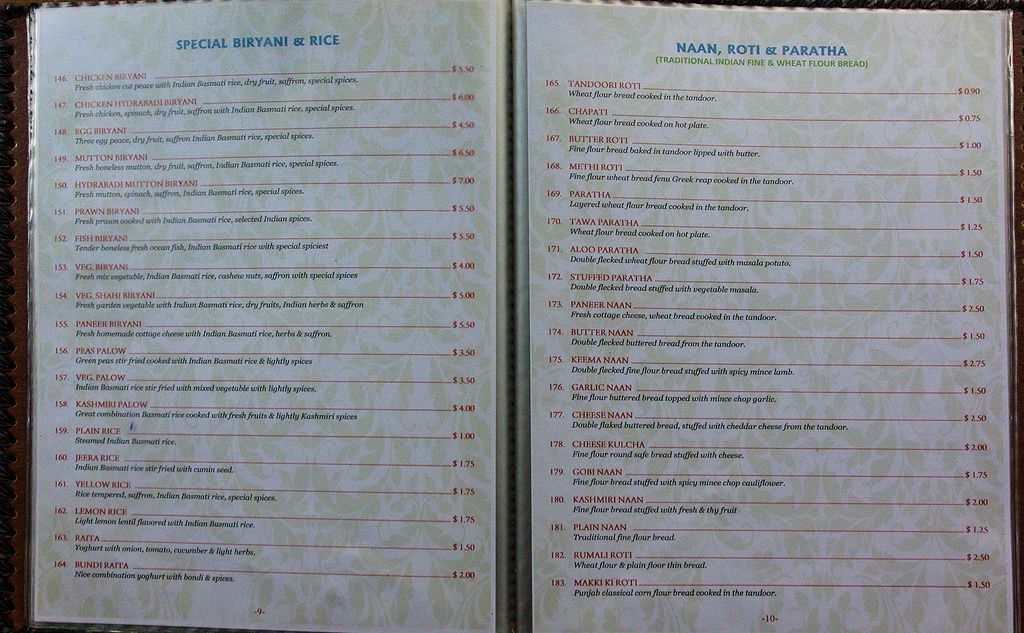 SPECIAL BIRYANI & RICE
146. CHICKEN BIRYANI $ 5.50
Fresh chicken cut peace with Indian Basmati rice, dry fruit, saffron, special spices.
147. CHICKEN HYDRABADI BIRYANI $ 6.00
Fresh chicken, spinach, dry fruit, saffron with Indian Basmati rice, special spices.
148. EGG BIRYANI $ 4.50
Three egg peace, dry fruit, saffron Indian Basmati rice, special spices.
149. MUTTON BIRYANI $ 6.50
Fresh boneless mutton, dry fruit, saffron, Indian Basmati rice, special spices.
150. HYDRABADI MUTTON BIRYANI $ 7.00
Fresh mutton, spinach, saffron, Indian Basmati rice, special spices.
151. PRAWN BIRYANI $ 5.50
Fresh prawn cooked with Indian Basmati rice, selected Indian spices.
152. FISH BIRYANI $ 5.50
Tender boneless fresh ocean fish, Indian Basmati rice with special spiciest
153. VEG. BIRYANI $ 4.00
Fresh mix vegetable, Indian Basmati rice, cashew nuts, saffron with special spices
154. VEG. SHAHI BIRYANI $ 5.00
Fresh garden vegetable with Indian Basmati rice, dry fruits, Indian herbs & saffron
155. PANEER BIRYANI $ 5.50
Fresh homemade cottage cheese with Indian Basmati rice, herbs & saffron.
156. PEAS PALOW $ 3.50
Green peas stir fried cooked with Indian Basmati rice & lightly spices
157. VEG. PALOW $ 3.50
Indian Basmati rice stir fried with mixed vegetable with lightly spices.
158. KASHMIRI PALOW $ 4.00
Great combination Basmati rice cooked with fresh fruits & lightly Kashmiri spices
159. PLAIN RICE $ 1.00
Steamed Indian Basmati rice.
160. JEERA RICE $ 1.75
Indian Basmati rice stir fried with cumin seed.
161. YELLOW RICE $ 1.75
Rice tempered, saffron, Indian Basmati rice, special spices.
162. LEMON RICE $ 1.75
Light lemon lentil flavored with Indian Basmati rice.
163. RAITA $ 1.50
Yoghurt with onion, tomato, cucumber & light herbs.
164. BUNDI RAITA $ 2.00
Nice combination yoghurt with bondi & spices.
-9-
NAAN, ROTI & PARATHA
(TRADITIONAL INDIAN FINE & WHEAT FLOUR BREAD)
165. TANDOORI ROTI $ 0.90
Wheat flour bread cooked in the tandoor.
166. CHAPATI $ 0.75
Wheat flour bread cooked on hot plate.
167. BUTTER ROTI $ 1.00
Fine flour bread baked in tandoor lipped with butter.
168. METHI ROTI $ 1.50
Fine flour wheat bread fenu Greek reap cooked in the tandoor.
169. PARATHA $ 1.50
Layered wheat flour bread cooked in the tandoor.
170. TAWA PARATHA $ 1.25
Wheat flour bread cooked on hot plate.
171. ALOO PARATHA $ 1.50
Double flecked wheat flour bread stuffed with masala potato.
172. STUFFED PARATHA $ 1.75
Double flecked bread stuffed with vegetable masala.
173. PANEER NAAN $ 2.50
Fresh cottage cheese, wheat bread cooked in the tandoor.
174. BUTTER NAAN $ 1.50
Double flecked buttered bread from the tandoor.
175. KEEMA NAAN $ 2.75
Double flecked fine flour bread stuffed with spicy mince lamb.
176. GARLIC NAAN $ 1.50
Fine flour buttered bread topped with mince chop garlic.
177. CHEESE NAAN $ 2.50
Double flaked buttered bread, stuffed with cheddar cheese from the tandoor.
178. CHEESE KULCHA $ 2.00
Fine flour round safe bread stuffed with cheese.
179. GOBI NAAN $ 1.75
Fine flour bread stuffed with spicy mince chop cauliflower.
180. KASHMIRI NAAN $ 2.00
Fine flour bread stuffed with fresh & thy fruit
181. PLAIN NAAN $ 1.25
Traditional fine flour bread.
182. RUMALI ROTI $ 2.50
Wheat flour & plain floor thin bread.
183. MAKKI KI ROTI $ 1.50
Punjab classical corn flour bread cooked in the tandoor.
-10-